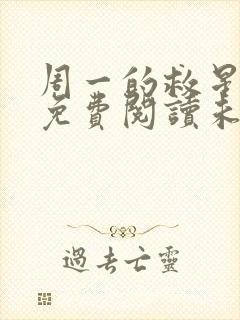 周一的救星
免費閱讀未
過去亡靈